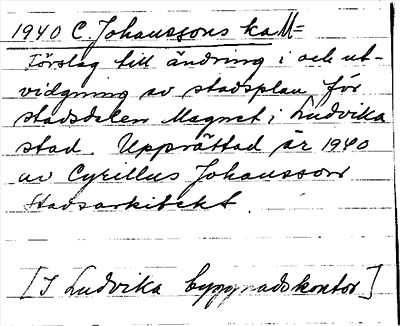 1940 C. Johanssons ka
Förslag till ändring i och ut-
vidgning av stadsplan för
stadsdelen Magnet i Ludvika
stad. Upprättad år 1940
av Cyrillus Johansson
Stadsarkitekt.
[I Ludvika byggnadskontor]